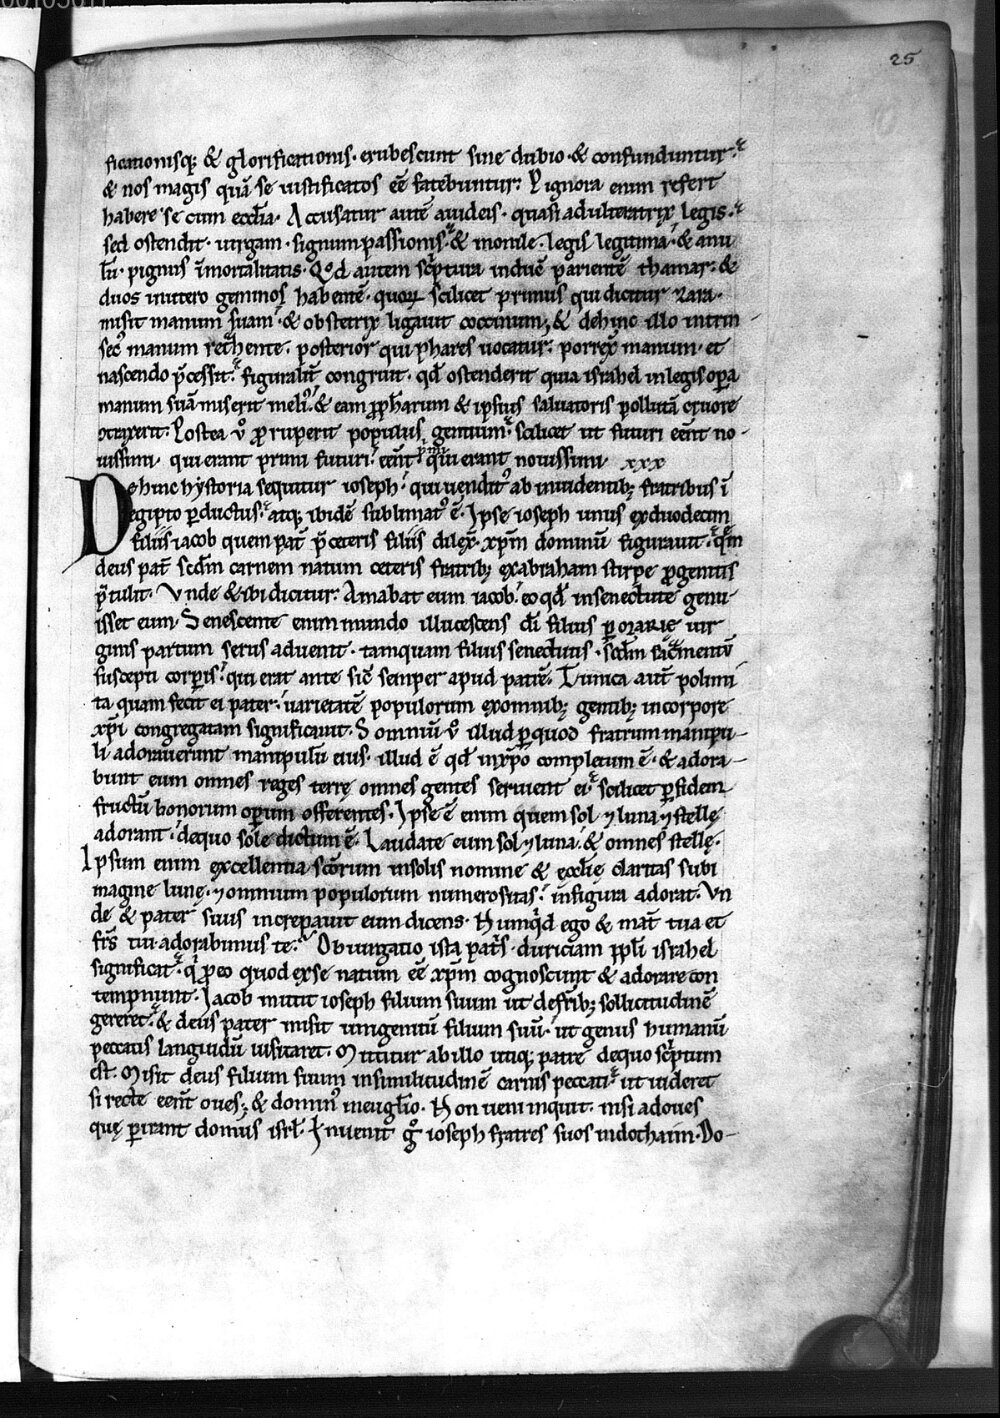 25
ficationisq; & glorificationis· erubescunt sine dubio· & confunduntur·
& nos magis quā se iustificatos eē fatebuntur· Pignora enim refert
habere se cum ecclīa· Accusatur autē a iudeis· quasi adulteratrix legis·
sed ostendit· uirgam· signum passionis· & monile· legis legitima· & anu
lū· pignus īmortalitatis· Qd autem scptura inducē parientē thamar· &
duos in utero geminos habentē· quoꝝ scilicet primus qui dicitur zara·
misit manum suam· & obstetrix ligauit coccinum; & dehinc illo intrin
sec᾽ manum retrhente· posterior qui phares uocatur· porrex manum· et
nascendo p̄cessit· figuralit̄ congruit· qd̄ ostenderit quia israhel in legis opa
manum suā miserit· & eam pphetarum & ipsius saluatoris pollutā cruore
ꝯtraxerit· Postea ū proruperit populus gentium· scilicet ut futuri eēnt no-
uissimi· qui erant primi· futuri eēnt primi qui erant nouissimi· xxx
Dehinc hystoria sequitur ioseph· qui uendit᾽ ab inuidentib; fratribus ī
egipto pductus· atq; ibidē sublimat᾽ ē· Ipse ioseph unus ex duodecim
filiis iacob quem pat̄ p̄ ceteris filiis dilex· xp̄m dominū figurauit· qm̄
deus pat̄ scdm̄ carnem natum ceteris fratrib; ex abraham stirpe progenitis
p̄tulit· Vnde & ibi dicitur· Amabat eum iacob· eo qd̄ in senectute genu-
isset eum· Senescente enim mundo illucescens dī filius p marię uir
ginis partum serus aduenit· tamquam filius senectutis· scdm̄ sac̄mentū
suscepti corpis· qui erat ante sic̄ semper apud patrē· Tunica aut̄ polimi
ta quam fecit ei pater· uarietatē populorum ex omnib; gentib; in corpore
xp̄i congregatam significauit· Somniū ū illud p quod fratrum manipu-
li adorauerunt manipulū eius· illud ē qd̄ in xp̄o completum ē· & adora-
bunt eum omnes reges terrę omnes gentes seruient ei· scilicet p fidem
fructū bonorum operum offerentes· Ipse ē enim quem sol ⁊ luna ⁊ stellę
adorant· de quo sole dictum ē· Laudate eum sol ⁊ luna· & omnes stellę·
Ipsum enim excellentia scōrum in solis nomine & ecclīę claritas sub i
magine lunę· ⁊ omnium populorum numerositas· in figura adorat· Vn
de & pater suus increpauit eum dicens· Numqd ego & mat̄ tua et
frs̄ tui adorabimus te· Obiurgatio ista pat̄s· duriciam ppli israhel
significat· q peo quod ex se natum eē xp̄m cognoscunt & adorare con
tempnunt· Iacob mittit ioseph filium suum ut de frīb; sollicitudinē
gereret· & deus pater misit unigenitū filium suū· ut genus humanū
peccatis languidū uisitaret· Mittitur ab illo utiq; patre de quo scptum
est· Misit deus filium suum in similitudinē carnis peccati· ut uideret
si recte eēnt oues; & domin᾽ in euglīo· Non ueni inquit· nisi ad oues
quę perirant domus isrl̄· Inuenit g ioseph fratres suos in dothaim· Do-